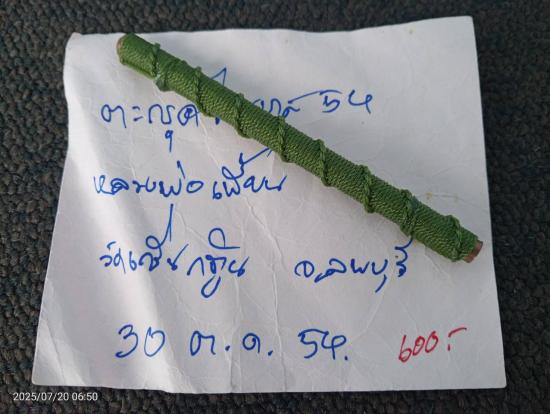 ตะกรุดไ 54
หลวงพ่อเพี้ยน
วัดเกริ่นกฐิน จ.ลพบุรี
30 ต.ค. 54. 600.-
2025/07/20 06:50